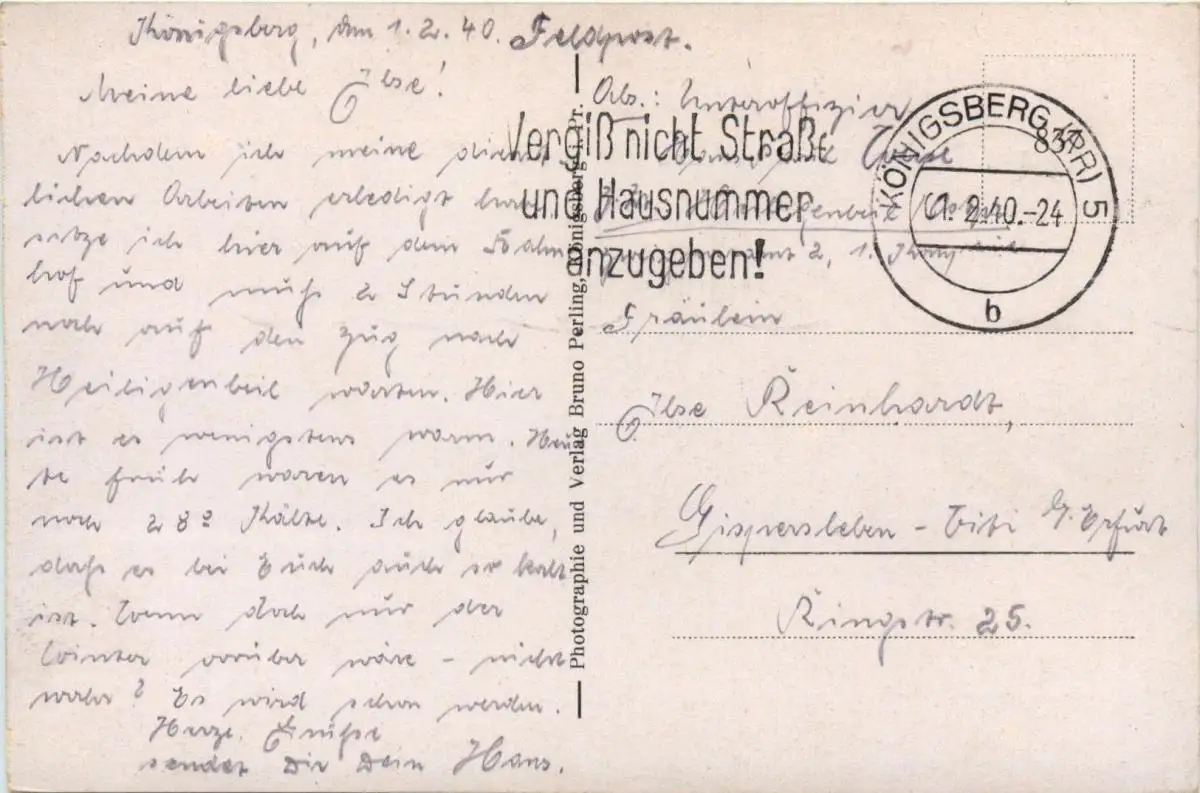 Königsberg, den 1.2.40. Feldpost.
Meine liebe Ilse!
Nachdem ich meine dienst-
lichen Arbeiten erledigt habe
sitze ich hier auf dem Bahn
hof und muß 2 Stunden
noch auf den Zug nach
Heiligenbeil warten. Hier
ist es wenigstens warm. Heu
te früh waren es nur
noch 28° Kälte. Ich glaube,
daß es bei Euch auch so kalt
ist. Wenn doch nur der
Winter vorüber wäre - nicht
wahr? Es wird schon werden.
Herzl. Grüße
sendet Dir Dein Hans.
Photographie und Verlag Bruno Perling, Königsberg i. Pr.
Abs.: Unteroffizier
Hans
2, 1.
Vergiß nicht Straße
und Hausnummer
anzugeben!
KÖNIGSBERG (PR) 5
1.2.40.-24
b
83
Fräulein
Ilse Reinhardt,
Gispersleben - Viti b. Erfurt
Ringstr. 25.